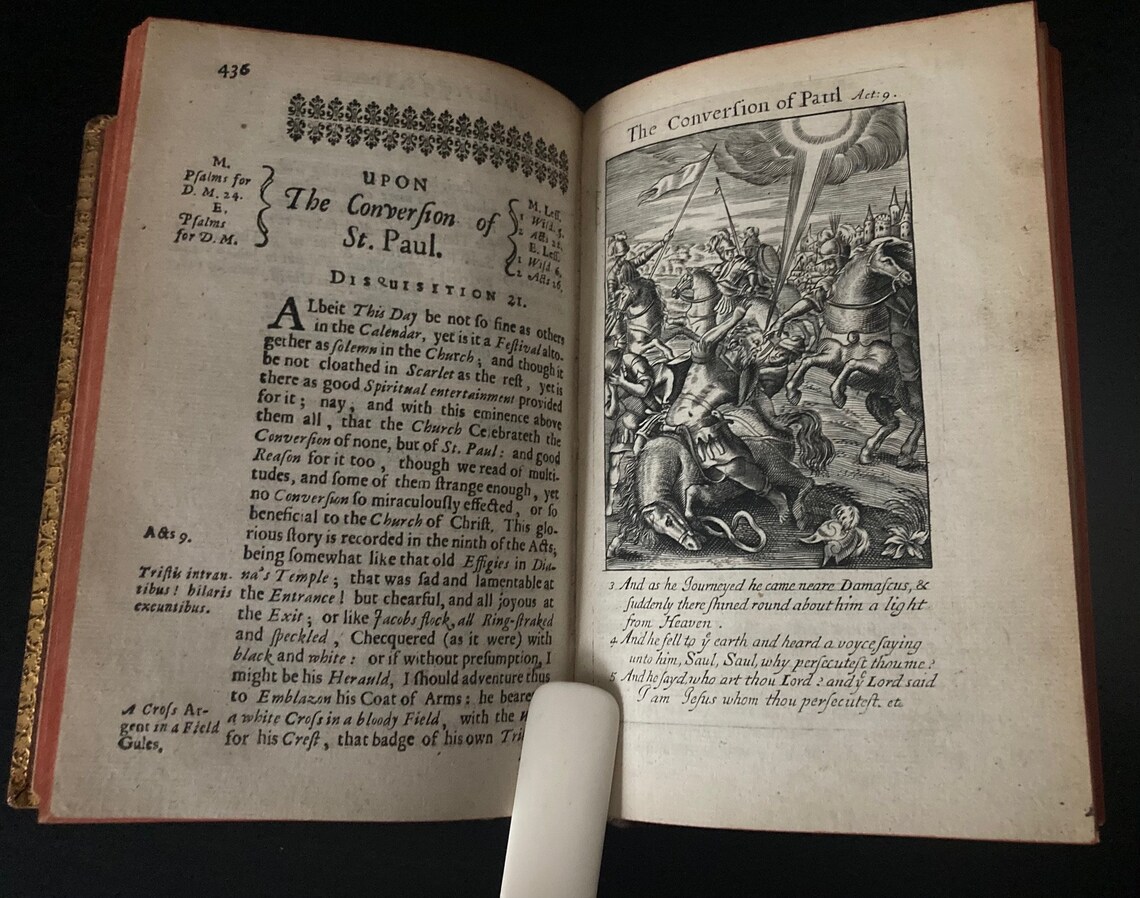 436
M.
Pſalms for
D. M. 24.
E.
Pſalms
for D. M.
UPON
The Converſion of
St. Paul.
M. Leſſ.
1 Wiſd. 5.
2 Acts 22.
E. Leſſ.
1 Wiſd. 6.
2 Acts 26.
DISQUISITION 21.
ALbeit This Day be not ſo fine as others
in the Calendar, yet is it a Feſtival alto-
gether as ſolemn in the Church; and though it
be not cloathed in Scarlet as the reſt, yet is
there as good Spiritual entertainment provided
for it; nay, and with this eminence above
them all, that the Church Celebrateth the
Converſion of none, but of St. Paul: and good
Reaſon for it too, though we read of multi-
tudes, and ſome of them ſtrange enough, yet
no Converſion ſo miraculouſly effected, or ſo
beneficial to the Church of Chriſt. This glo-
rious ſtory is recorded in the ninth of the Acts,
being ſomewhat like that old Effigies in Dia-
na's Temple; that was ſad and lamentable at
the Entrance! but chearful, and all joyous at
the Exit; or like Jacobs flock, all Ring-ſtraked
and ſpeckled, Checquered (as it were) with
black and white: or if without preſumption, I
might be his Herauld, I ſhould adventure thus
to Emblazon his Coat of Arms: he beare
a white Croſs in a bloody Field, with the
for his Creſt, that badge of his own
Acts 9.
Triſtis intran-
tibus! hilaris
exeuntibus.
A Croſs Ar-
gent in a Field
Gules.
The Converſion of Paul Act: 9.
3 And as he Journeyed he came neare Damaſcus, &
ſuddenly there ſhined round about him a light
from Heaven.
4 And he fell to yͤ earth and heard a voyce ſaying
unto him, Saul, Saul, why perſecuteſt thou me?
5 And he ſayd, who art thou Lord? and yͤ Lord said
I am Jeſus whom thou perſecuteſt. etc